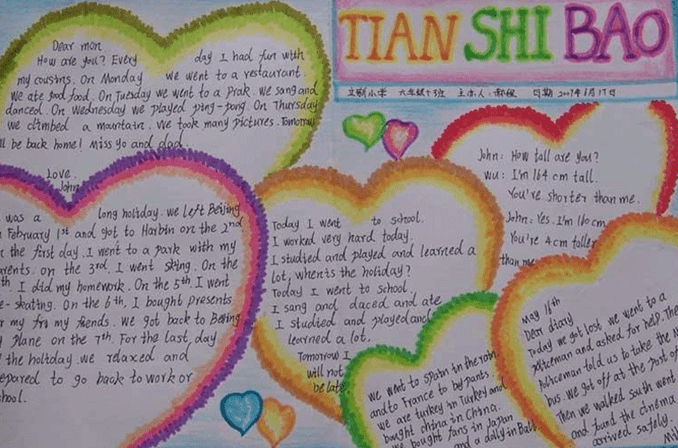 TIAN SHI BAO
Dear mom
How are you? Every day I had fun with
my cousins. On Monday we went to a restaurant.
We ate good food. On Tuesday we went to a prak. We sang and
danced. On Wednesday we played ping-pong. On Thursday
we climbed a mountain. We took many pictures. Tomorrow
ll be back home! Miss yo and dad.
Love.
John
was a long holiday. we left Beijing
n February 1st and got to Harbin on the 2nd
n the first day. I went to a park with my
arents. on the 3rd I went sking. On the
th I did my homework. On the 5th I went
e-skating. On the 6th, I bought presents
r my friends. We got back to Beijing
y plane on the 7th. For the last day
the holiday we rdaxed and
epared to go back to work or
chool.
Today I went to school.
I worked very hard today.
I studied and played and learned a
lot, when's the holiday?
Today I went to school
I sang and daced and ate
I studied and played and
learned a lot.
Tomorrow I
will not
be late
John: How tall are you?
wu: I'm 164 cm tall.
You're shorter than me.
John: Yes. I'm 160 cm
You're 4 cm taller
than me
We went to spain in the rain
and to France to by pants
we are turkey in Turkey and
bught china in China.
We bought fans in Japan
and a dolly in Bali
May 16th
Dear diary
Today we got lost. we went to a
policeman and asked for help. The
policeman told us to take the
bus. we got off at the post of
Then we walked south went
and fund the cinema
arrived safely.